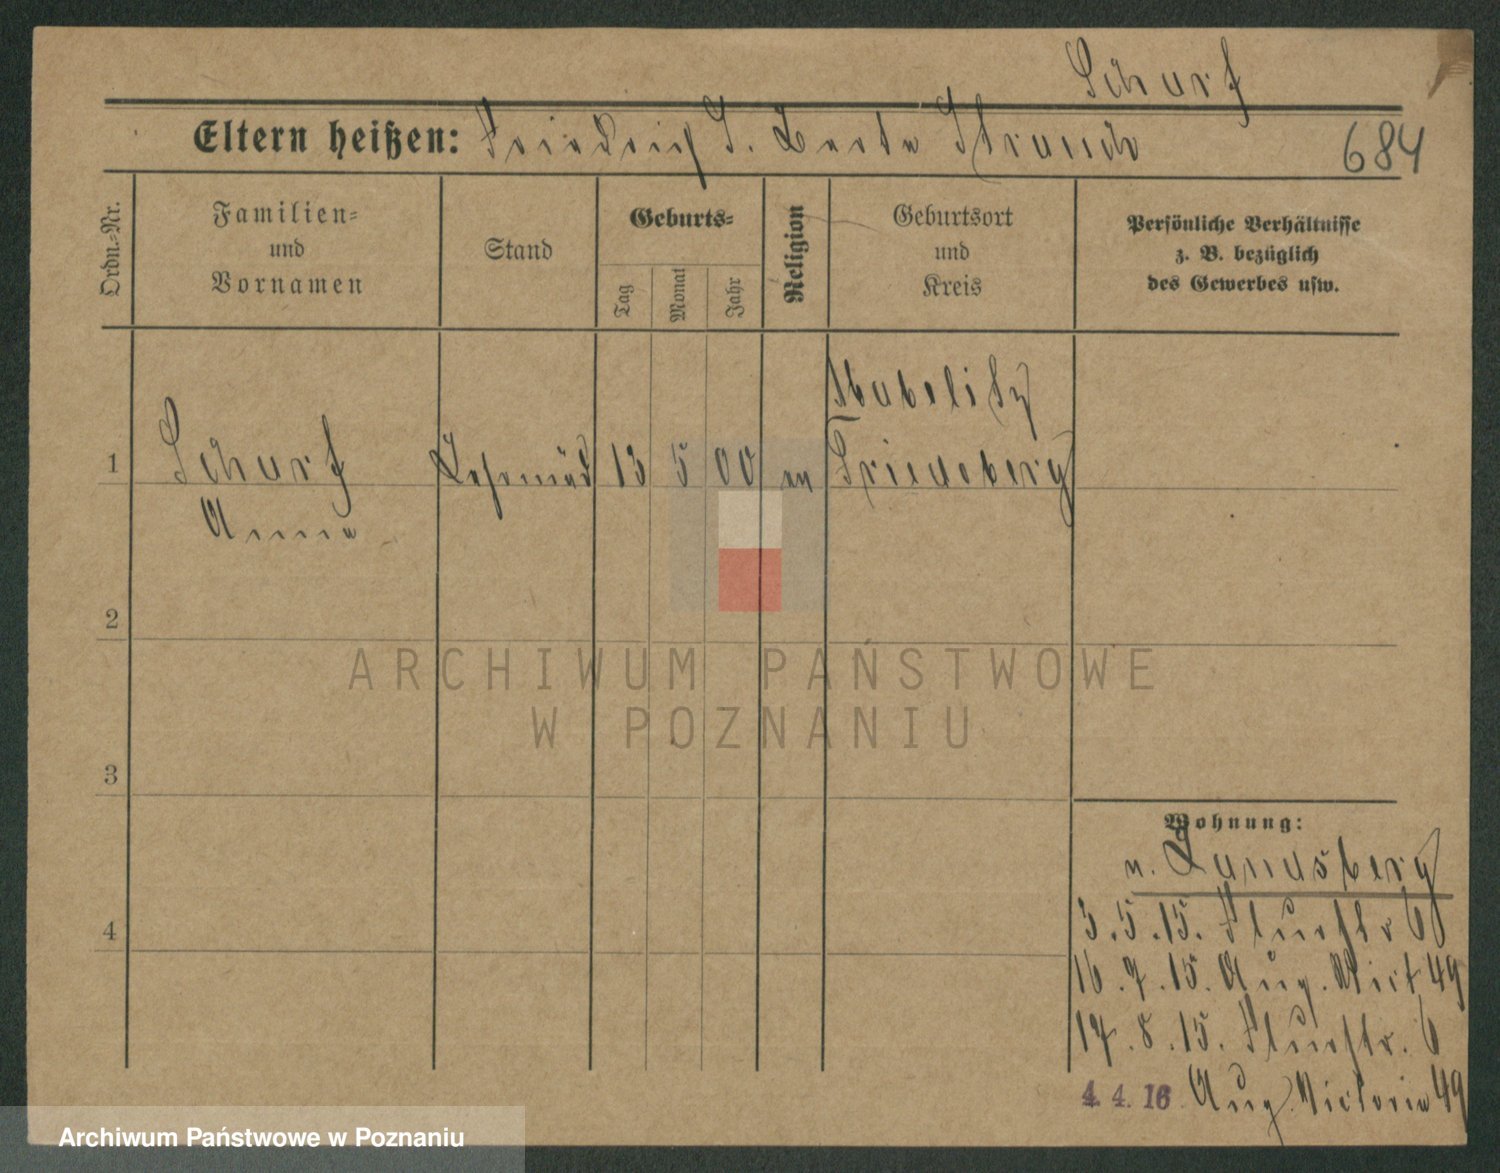 Scharf
Eltern heißen: Friedrich J. Berta Strauch
684
Ordn.-Nr.
Familien-
und
Vornamen
Stand
Geburts-
Tag
Monat
Jahr
Religion
Geburtsort
und
Kreis
Persönliche Verhältnisse
z. B. bezüglich
des Gewerbes usw.
1
Scharf
Anna
13 5 00 ev
Friedeberg
2
3
4
ARCHIWUM PAŃSTWOWE
W POZNANIU
Wohnung:
n. Landsberg
3.5.15. Flurstr 6
16.7.15. Aug. Vict 49
17.8.15. Flurstr. 6
4.4.16 Aug. Victoria 49
Archiwum Państwowe w Poznaniu